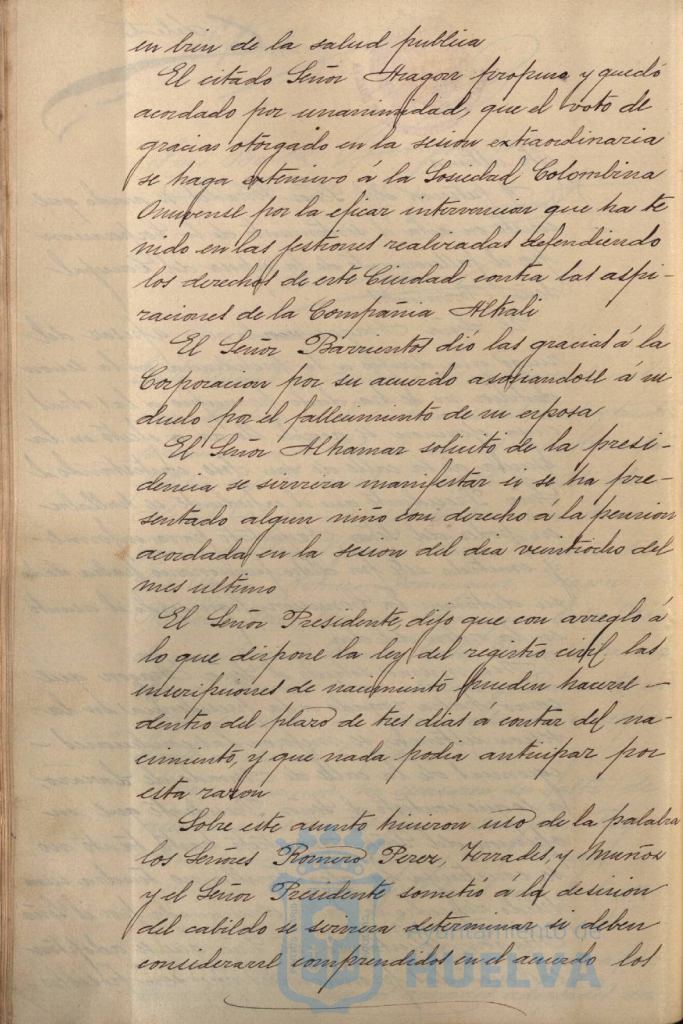 en bien de la salud publica
El citado Señor Aragon propuso y quedó
acordado por unanimidad, que el voto de
gracias otorgado en la sesion extraordinaria
se haga extensivo á la Sosiedad Colombina
Onuvense por la eficaz intervencion que ha te
nido en las jestiones realizadas defendiendo
los derechos de este Ciudad contra las aspi-
raciones de la Compañia Alkali
El Señor Barrientos dió las gracias á la
Corporacion por su acuerdo asosiandose á su
duelo por el fallecimiento de su esposa
El Señor Alhamar solicitó de la presi-
dencia se sirviera manifestar si se ha pre-
sentado algun niño con derecho á la pension
acordada en la sesion del dia veintiocho del
mes ultimo
El Señor Presidente, dijo que con arreglo á
lo que dispone la ley del registro civil las
inscripciones de nacimiento pueden hacerse -
dentro del plazo de tres dias á contar del na-
cimiento, y que nada podia anticipar por
esta razon
Sobre este asunto hicieron uso de la palabra
los Señores Romero Perez, Terrades, y Muñoz
y el Señor Presidente sometió á la desision
del cabildo se sirviera determinar si deben
considerarse comprendidos en el acuerdo los
Ayuntamiento de
HUELVA